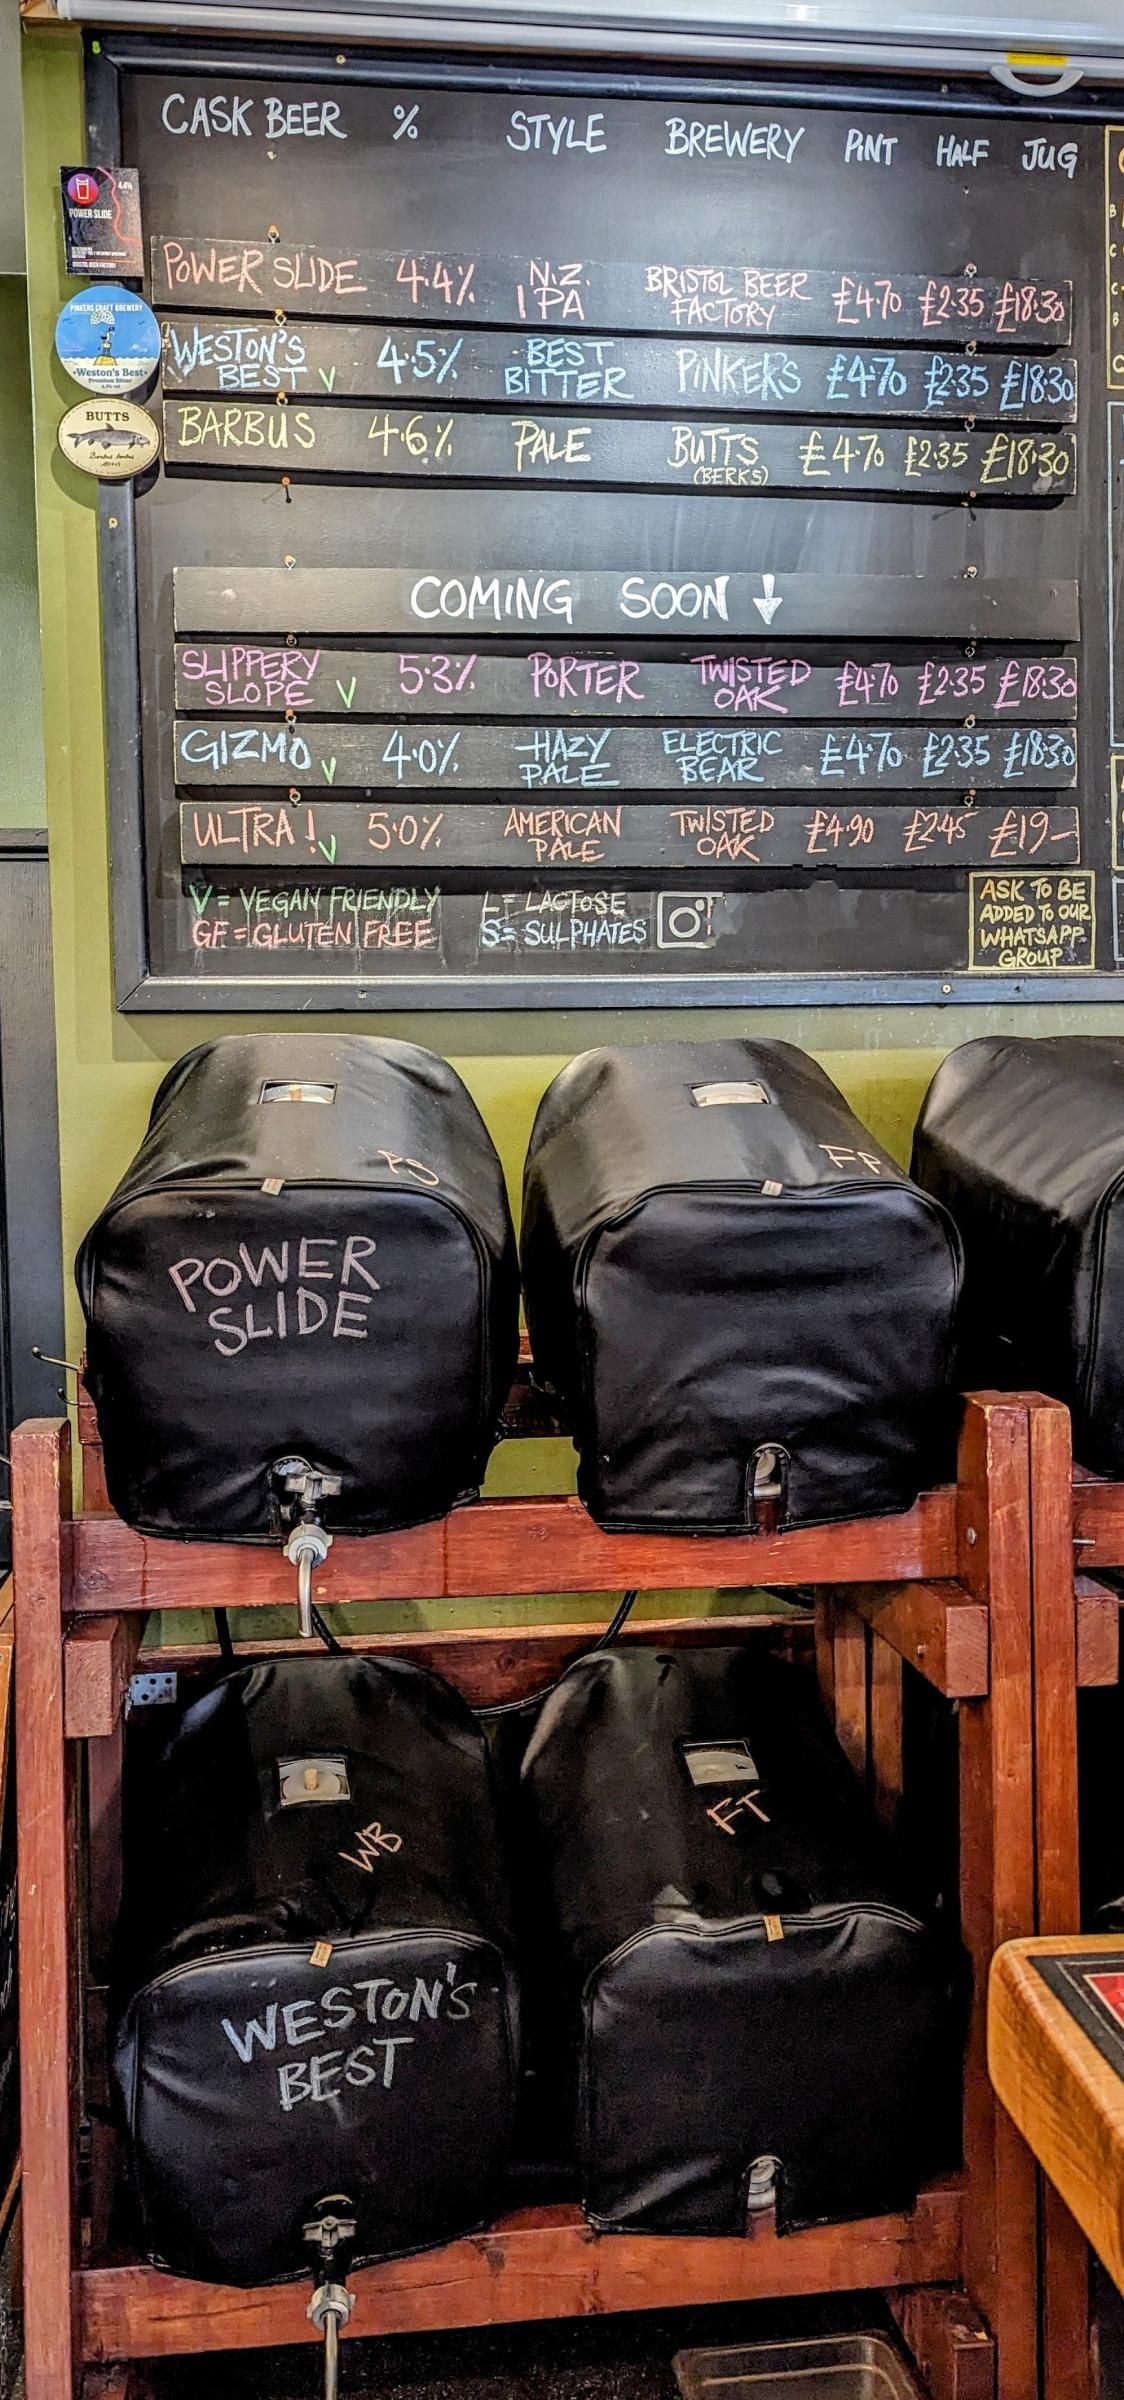 CASK BEER % STYLE BREWERY PINT HALF JUG
4.4%
POWER SLIDE
BRISTOL BEER FACTORY
POWER SLIDE 4.4% N.Z. IPA BRISTOL BEER FACTORY £4.70 £2.35 £18.30
PINKERS CRAFT BREWERY
Weston's Best
Premium Bitter
WESTON'S BEST V 4.5% BEST BITTER PINKER'S £4.70 £2.35 £18.30
BUTTS
Barbus barbus
BARBUS 4.6% PALE BUTTS (BERKS) £4.70 £2.35 £18.30
COMING SOON ↓
SLIPPERY SLOPE V 5.3% PORTER TWISTED OAK £4.70 £2.35 £18.30
GIZMO V 4.0% HAZY PALE ELECTRIC BEAR £4.70 £2.35 £18.30
ULTRA! V 5.0% AMERICAN PALE TWISTED OAK £4.90 £2.45 £19-
V = VEGAN FRIENDLY L = LACTOSE
GF = GLUTEN FREE S = SULPHATES
ASK TO BE
ADDED TO OUR
WHATSAPP
GROUP
PS
FP
POWER
SLIDE
WB
FT
WESTON'S
BEST